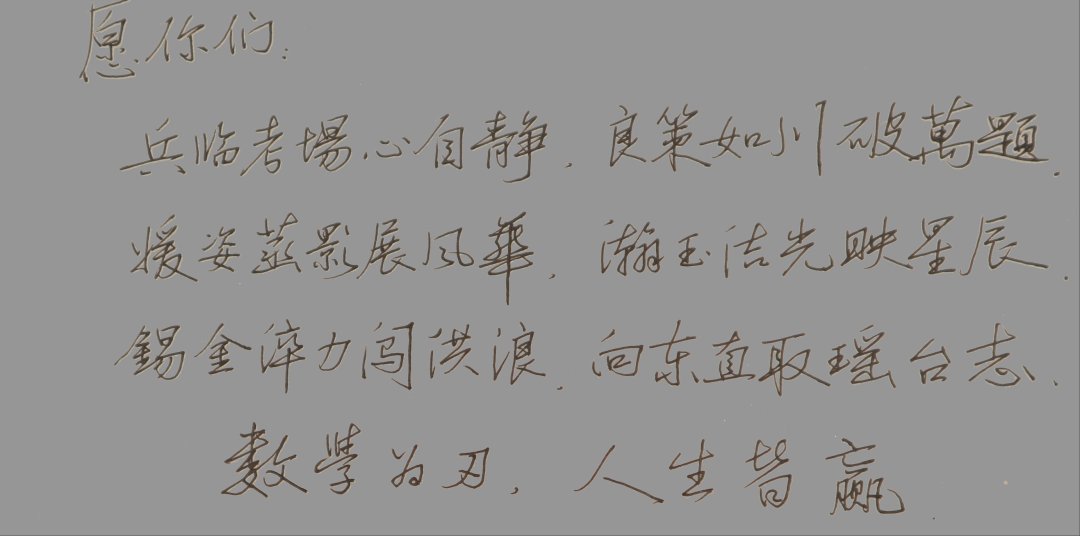 愿你们:
兵临考場心自静，良策如川破萬題.
媛姿燕影展风華，瀚玉洁光映星辰.
錫金淬力闯洪浪，向东直取瑶台志.
数學为刃，人生皆赢.